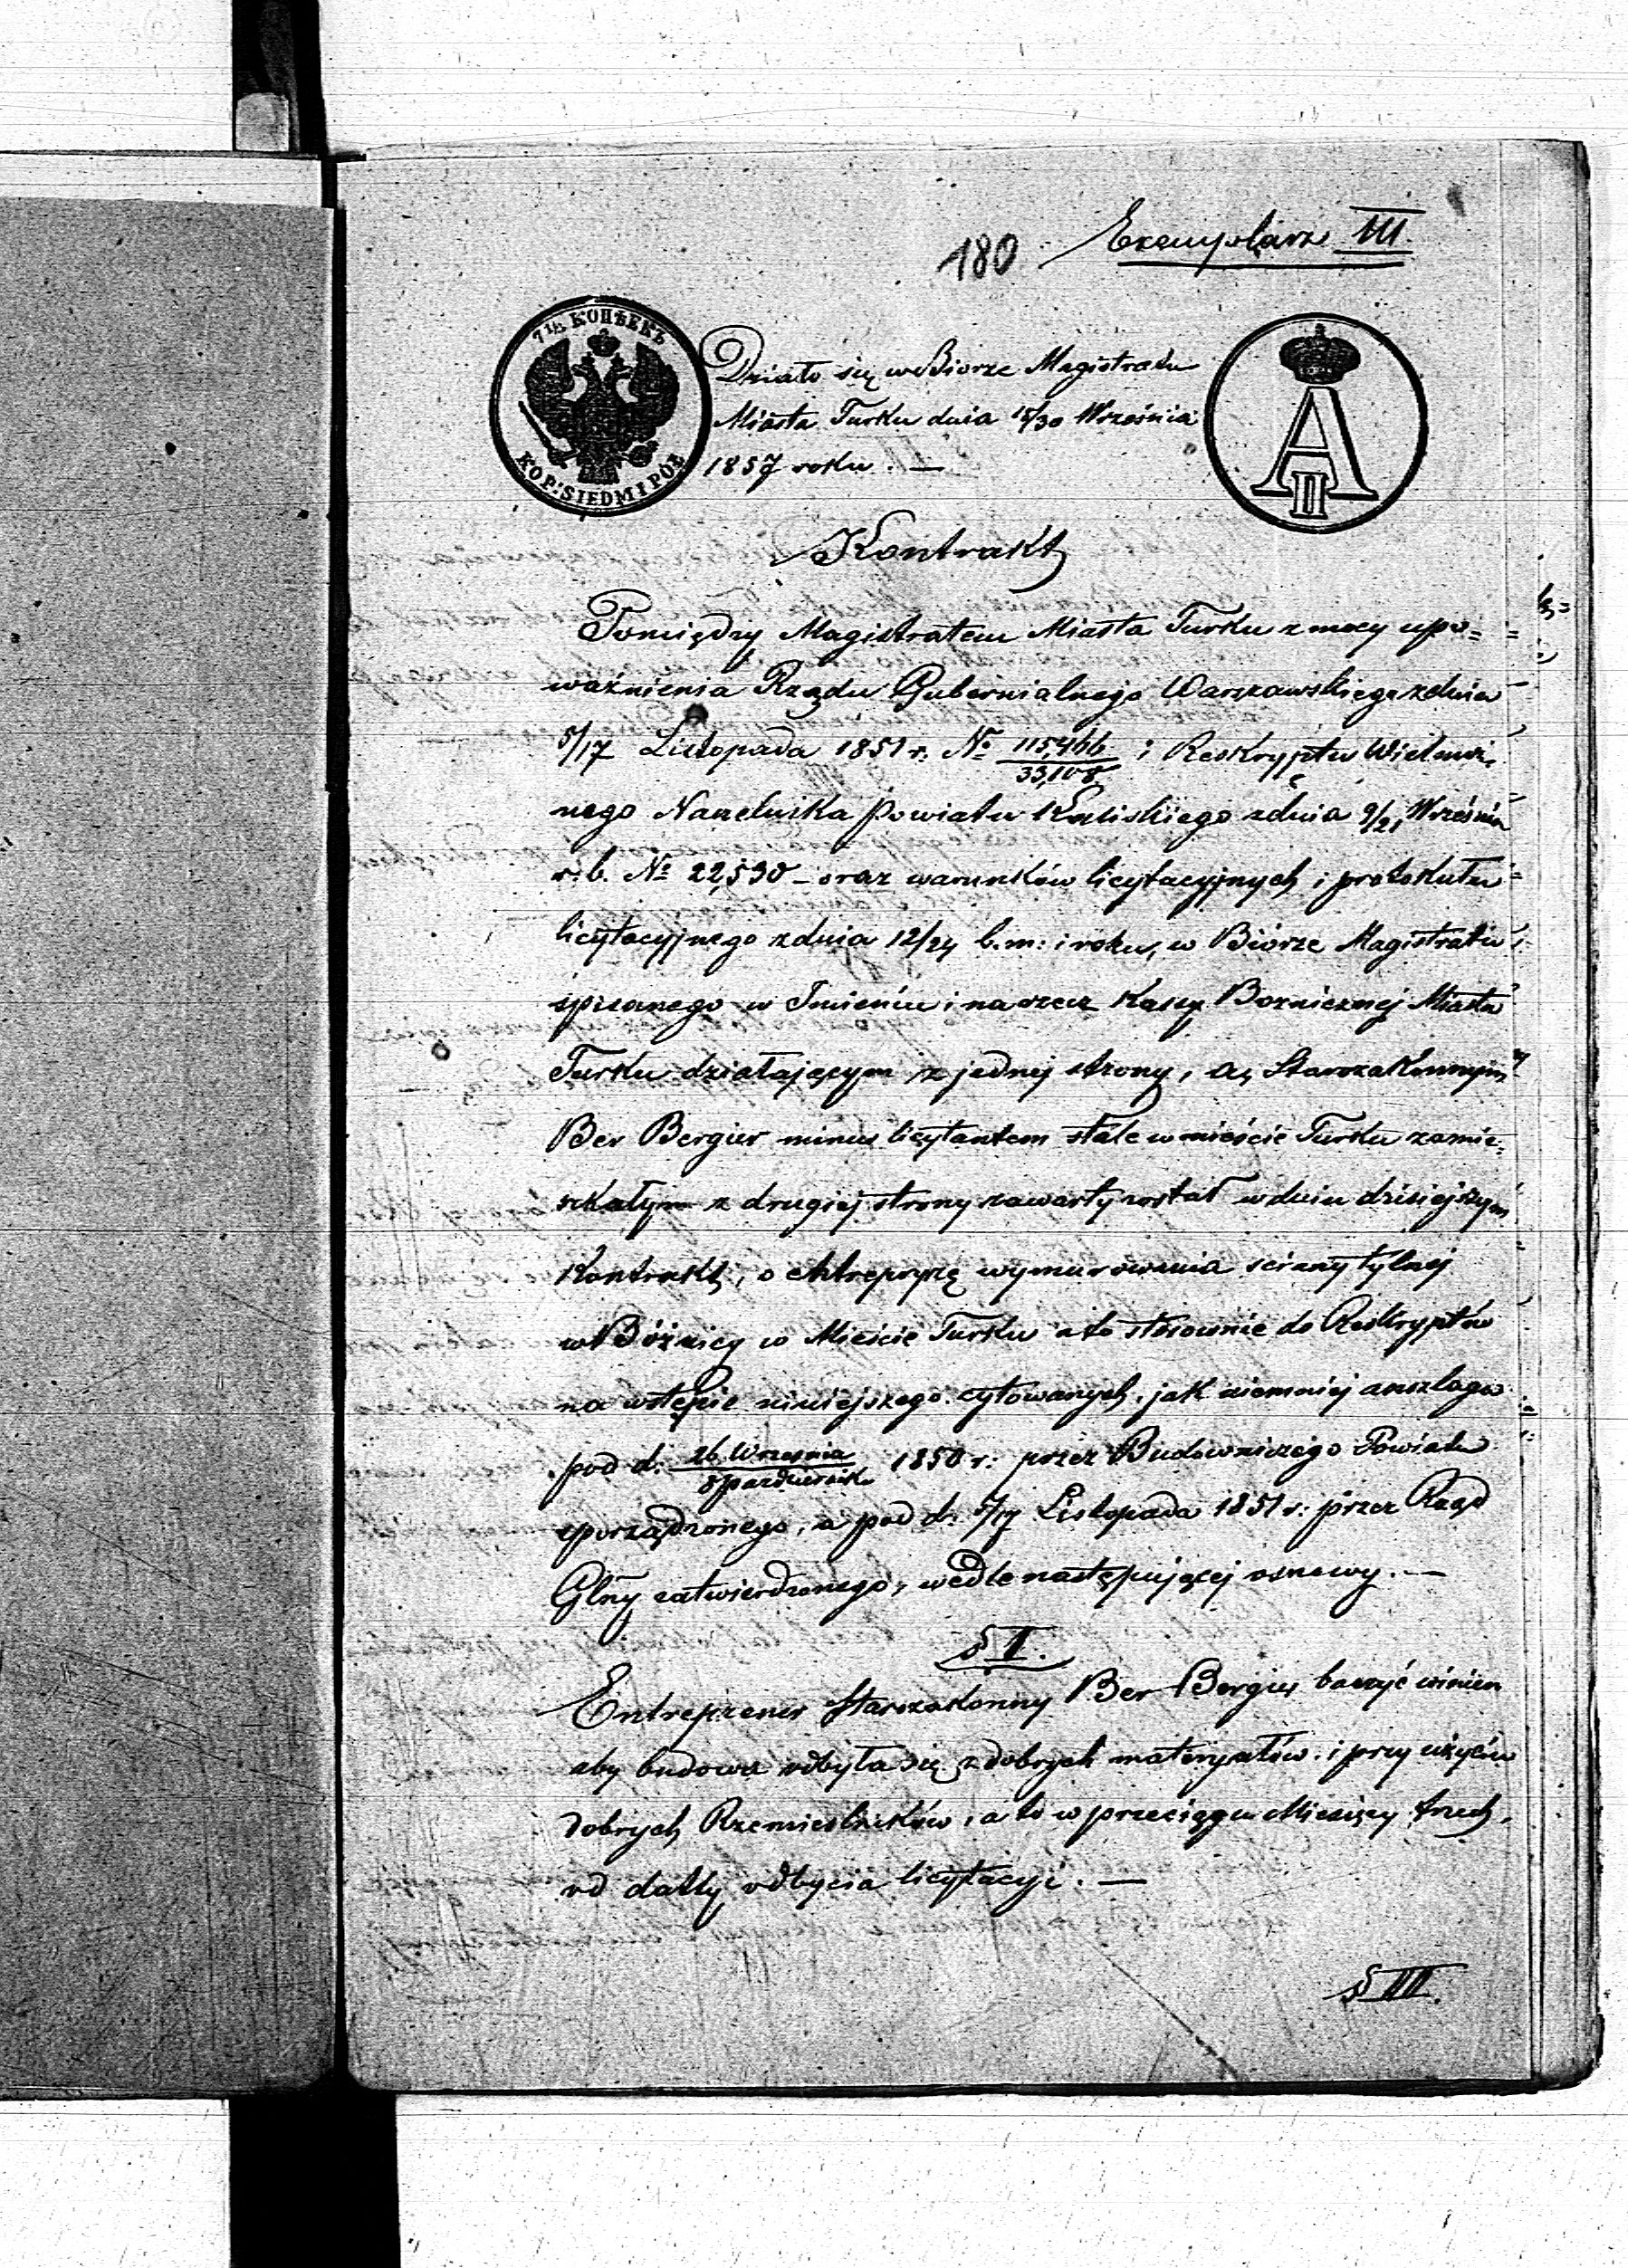 180 Exemplarz III.
7½ КОПѢЕКЪ
KOP: SIEDM I PÓŁ
A II
Działo się w Biorze Magistratu
Miasta Turku dnia 18/30 Września
1857 roku. —
Kontrakt
Pomiędzy Magistratem Miasta Turku z mocy upo=
ważnienia Rządu Gubernialnego Warszawskiego z dnia
5/17 Listopada 1851 r. № 115,466/33,108 i Reskryptu Wielmoż
nego Naczelnika Powiatu Kaliskiego z dnia 9/21 Września
r. b. № 22,530 – oraz warunków licytacyjnych i protokułu
licytacyjnego z dnia 12/24 b. m: i roku, w Biórze Magistratu
spisanego w Imieniu i na rzecz Kassy Boznicznej Miasta
Turku działającym z jednej strony, a, Starozakonnym
Ber Bergier minus licytantem stale w mieście Turku zamie=
szkałym z drugiej strony zawarty został w dniu dzisiejszym
Kontrakt, o entrepryzę wymurowania sciany tylnej
w Bóżnicy w Mieście Turku a to stosownie do Reskryptów
na wstępie niniejszego cytowanych, jak niemniej anszlagu
pod d: 26 Wrzesnia/8 Pazdziernika 1850 r: przez Budowniczego Powiatu
sporządzonego, a pod d: 5/17 Listopada 1851 r: przez Rząd
Glny zatwierdzonego, wedle następującej osnowy. —
§ I.
Entreprener Starozakonny Ber Bergier baczyć winien
aby budowa odbyła się z dobrych materyałów i przy użyciu
dobrych Rzemieslników, a to w przeciągu Miesięcy trzech,
od datty odbycia licytacyi. —
§ III.